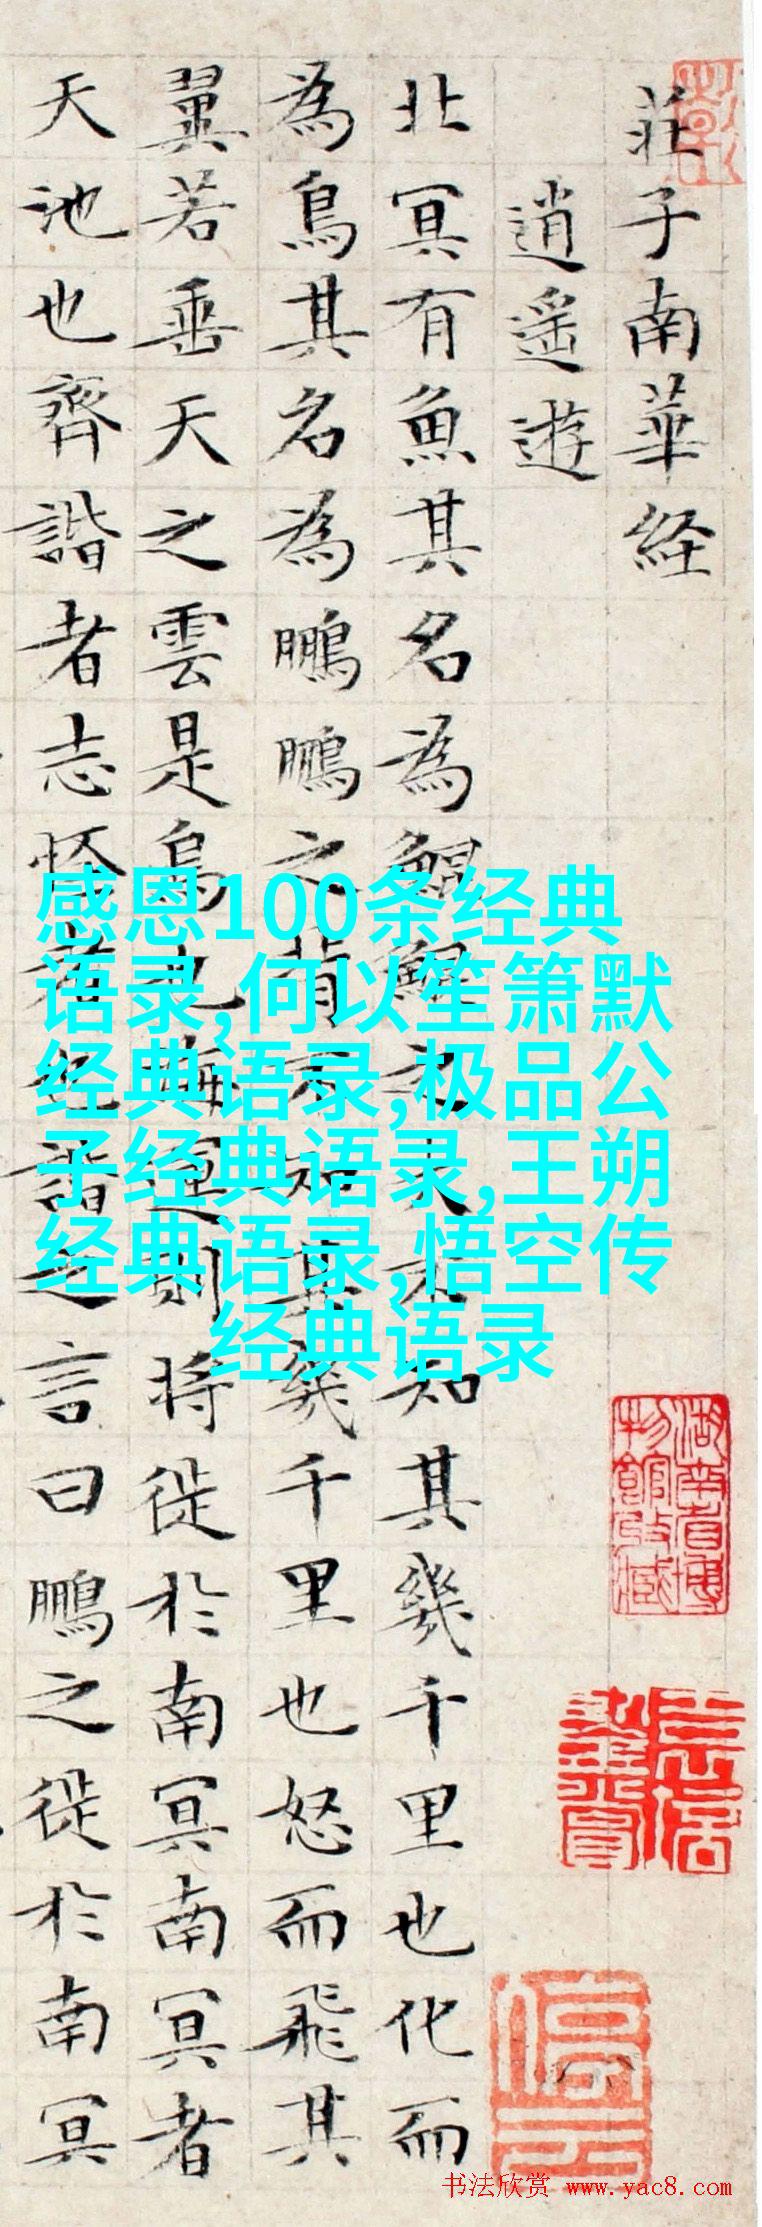 莊子南華経
逍遙遊
北冥有魚其名為鯤鯤之大不知其幾千里也化而
為鳥其名為鵬鵬之背不知其幾千里也怒而飛其
翼若垂天之雲是鳥也海運則將徙於南冥南冥者
天池也齊諧者志怪者也諧之言曰鵬之徙於南冥
感恩100条经典
语录,何以笙箫默
经典语录,极品公
子经典语录,王朔
经典语录,悟空传
经典语录
湖南省博
物館收藏
停云
书法欣赏 www.yac8.com